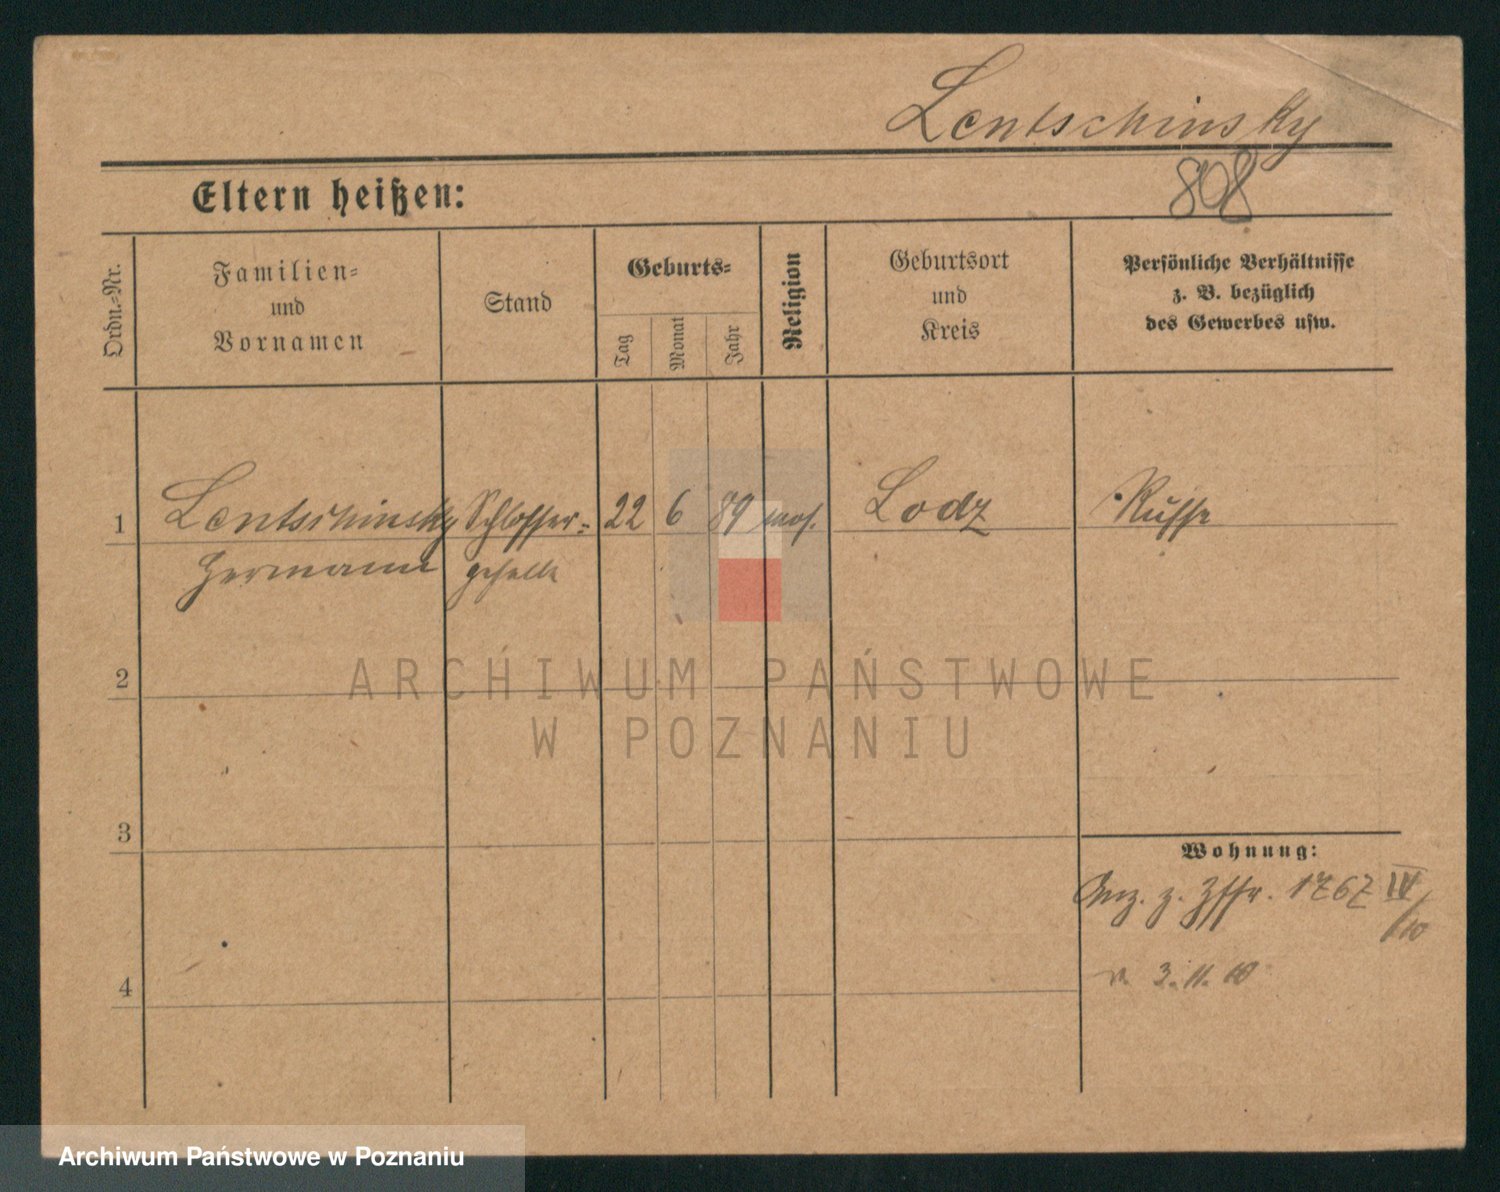 Lentschinsky
808
Eltern heißen:
Ordn.-Nr.
Familien-
und
Vornamen
Stand
Geburts-
Tag
Monat
Jahr
Religion
Geburtsort
und
Kreis
Persönliche Verhältnisse
z. B. bezüglich
des Gewerbes usw.
1
Lentschinsky
Hermann
Schlosser-
geselle
22
6
89
mos.
Lodz
Russe
2
3
4
Wohnung:
z. 1767 IV/10
v. 3.11.10
ARCHIWUM PAŃSTWOWE
W POZNANIU
Archiwum Państwowe w Poznaniu